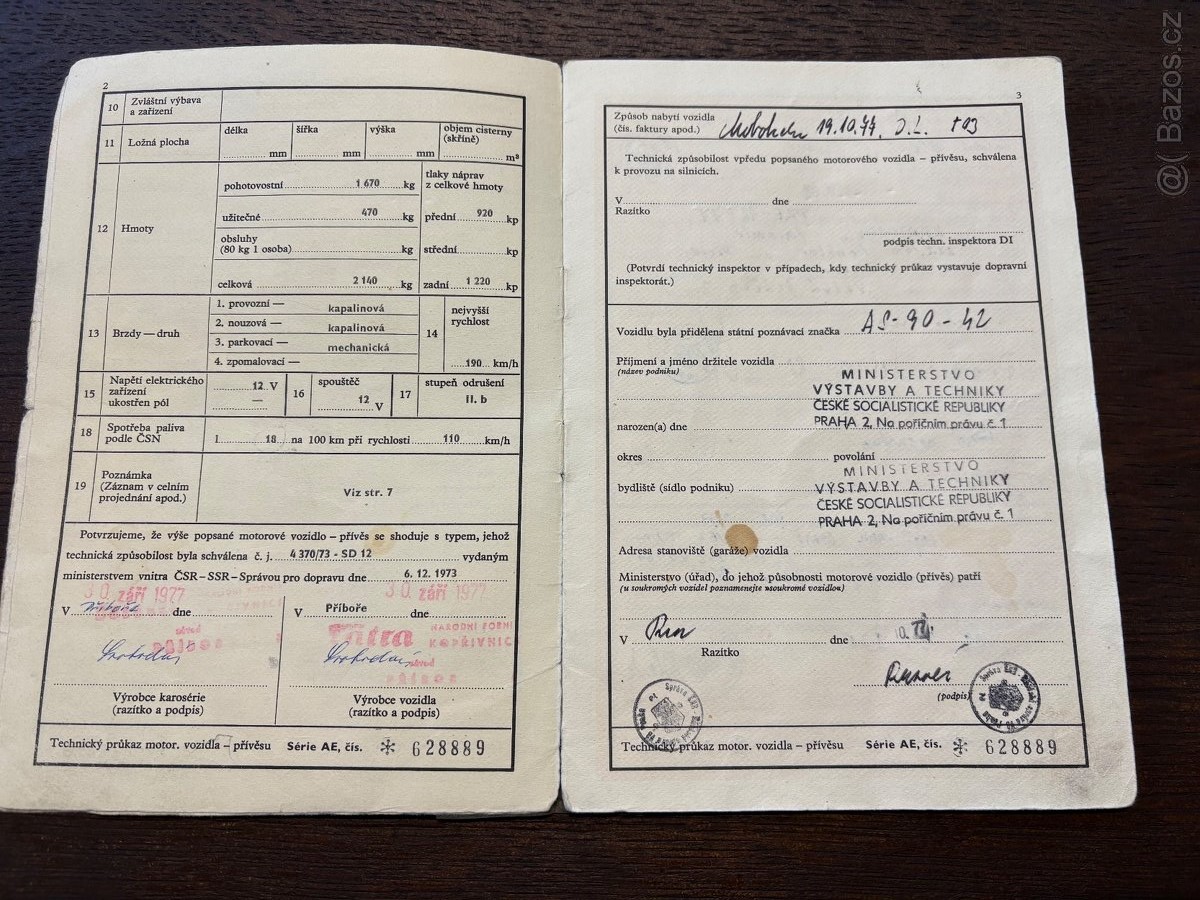 2
10 Zvláštní výbava
a zařízení
11 Ložná plocha délka ... mm šířka ... mm výška ... mm objem cisterny
(skříně) ... m³
12 Hmoty
pohotovostní 1 670 kg
tlaky náprav
z celkové hmoty
užitečné 470 kg přední 920 kp
obsluhy
(80 kg 1 osoba) kg střední kp
celková 2 140 kg zadní 1 220 kp
13 Brzdy — druh
1. provozní — kapalinová
2. nouzová — kapalinová
3. parkovací — mechanická
4. zpomalovací —
14 nejvyšší
rychlost
190 km/h
15 Napětí elektrického
zařízení
ukostřen pól
12 V
—
16 spouštěč
12 V
17 stupeň odrušení
II. b
18 Spotřeba paliva
podle ČSN
l 18 na 100 km při rychlosti 110 km/h
19 Poznámka
(Záznam v celním
projednání apod.)
Viz str. 7
Potvrzujeme, že výše popsané motorové vozidlo – přívěs se shoduje s typem, jehož
technická způsobilost byla schválena č. j. 4 370/73 - SD 12 vydaným
ministerstvem vnitra ČSR–SSR–Správou pro dopravu dne 6. 12. 1973
30. září 1977
V Příboře dne
Výrobce karosérie
(razítko a podpis)
30. září 1977
V Příboře dne
Tatra
NÁRODNÍ
KOPŘIVNICE
závod
PŘÍBOR
Výrobce vozidla
(razítko a podpis)
Technický průkaz motor. vozidla – přívěsu Série AE, čís. 628889
3
Způsob nabytí vozidla
(čís. faktury apod.) 19.10.77
Technická způsobilost vpředu popsaného motorového vozidla – přívěsu, schválena
k provozu na silnicích.
V dne
Razítko
podpis techn. inspektora DI
(Potvrdí technický inspektor v případech, kdy technický průkaz vystavuje dopravní
inspektorát.)
Vozidlu byla přidělena státní poznávací značka AS-90-42
Příjmení a jméno držitele vozidla
(název podniku)
MINISTERSTVO
VÝSTAVBY A TECHNIKY
ČESKÉ SOCIALISTICKÉ REPUBLIKY
PRAHA 2, Na poříčním právu č. 1
narozen(a) dne
okres povolání
bydliště (sídlo podniku)
MINISTERSTVO
VÝSTAVBY A TECHNIKY
ČESKÉ SOCIALISTICKÉ REPUBLIKY
PRAHA 2, Na poříčním právu č. 1
Adresa stanoviště (garáže) vozidla
Ministerstvo (úřad), do jehož působnosti motorové vozidlo (přívěs) patří
(u soukromých vozidel poznamenejte »soukromé vozidlo«)
V dne
Razítko
(podpis)
Technický průkaz motor. vozidla – přívěsu Série AE, čís. 628889
@( Bazos.cz